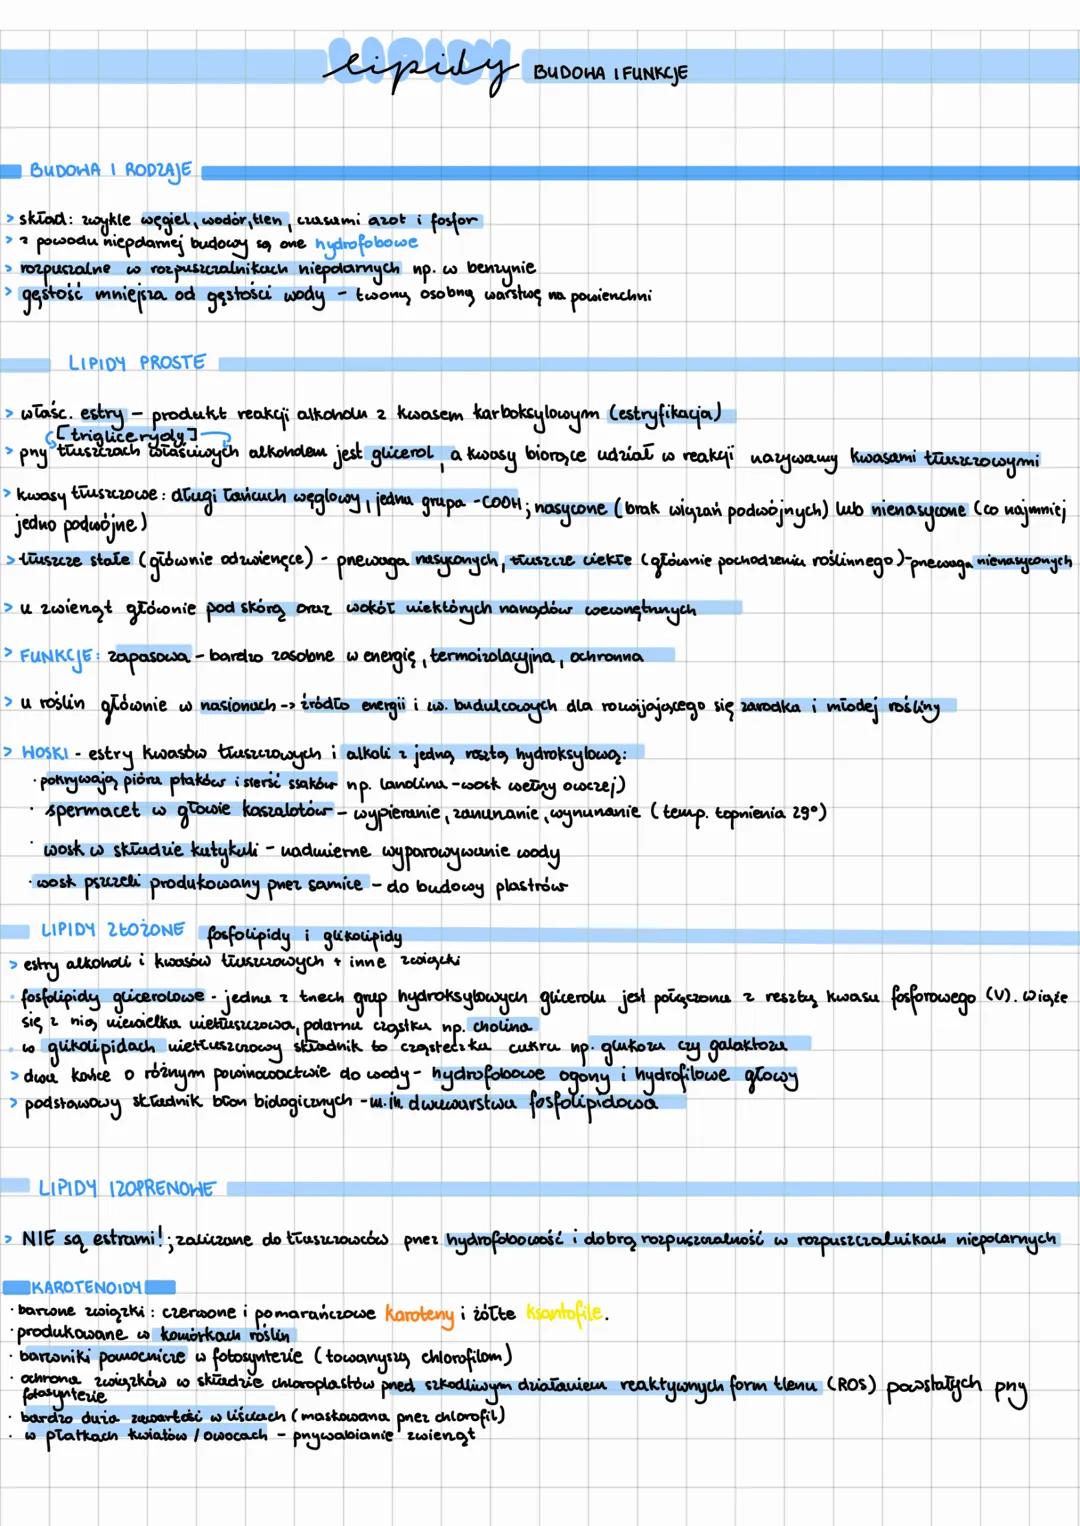 lipidy BUDOWA I FUNKCJE
BUDOWA I RODZAJE
> skład: zwykle węgiel, wodór, tlen, czasami azot i fosfor
> z powodu niepolarnej budowy są one hydrofobowe
> rozpuszalne w rozpuszczalnikach niepolarnych np. w benzynie
> gęstość mniejsza od gęstości wody - tworzą osobną warstwę na powierzchni
LIPIDY PROSTE
> właśc. estry - produkt reakcji alkoholu z kwasem karboksylowym (estryfikacja)
[triglicerydy]
> przy tłuszczach właściwych alkoholem jest glicerol, a kwasy biorące udział w reakcji nazywamy kwasami tłuszczowymi
> kwasy tłuszczowe: długi łańcuch węglowy, jedna grupa -COOH; nasycone (brak wiązań podwójnych) lub nienasycone (co najmniej
jedno podwójne)
> tłuszcze stałe (głównie odzwierzęce) - przewaga nasyconych, tłuszcze ciekłe (głównie pochodzenia roślinnego)-przewaga nienasyconych
> u zwierząt głównie pod skórą oraz wokół niektórych narządów wewnętrznych
> FUNKCJE: zapasowa - bardzo zasobne w energię, termoizolacyjna, ochronna
> u roślin głównie w nasionach -> źródło energii i zw. budulcowych dla rozwijającego się zarodka i młodej rośliny
> WOSKI - estry kwasów tłuszczowych i alkoli z jedną resztą hydroksylową:
· pokrywają pióra ptaków i sierść ssaków np. lanolina - wosk wełny owczej)
· spermacet w głowie kaszalotów - wypieranie, zanurzanie, wynurzanie (temp. topnienia 29°)
· wosk w składzie kutykuli - nadmierne wyparowywanie wody
· wosk pszczeli produkowany przez samice - do budowy plastrów
LIPIDY ZŁOŻONE fosfolipidy i glikolipidy
> estry alkoholi i kwasów tłuszczowych + inne związki
· fosfolipidy glicerolowe - jedna z trzech grup hydroksylowych glicerolu jest połączona z resztą kwasu fosforowego (V). Wiąże
się z nią niewielka nietłuszczowa, polarna cząstka np. cholina
· w glikolipidach nietłuszczowy składnik to cząsteczka cukru np. glukoza czy galaktoza
> dwa końce o różnym powinowactwie do wody - hydrofobowe ogony i hydrofilowe głowy
> podstawowy składnik błon biologicznych - m.in. dwuwarstwa fosfolipidowa
LIPIDY IZOPRENOWE
> NIE są estrami!; zaliczane do tłuszczowców przez hydrofobowość i dobrą rozpuszczalność w rozpuszczalnikach niepolarnych
KAROTENOIDY
· barwne związki: czerwone i pomarańczowe karoteny i żółte ksantofile.
· produkowane w komórkach roślin
· barwniki pomocnicze w fotosyntezie (towarzyszą chlorofilom)
· ochrona związków w składzie chloroplastów przed szkodliwym działaniem reaktywnych form tlenu (ROS) powstałych przy
fotosyntezie
· bardzo duża zawartość w liściach (maskowana przez chlorofil)
· w płatkach kwiatów / owocach - przywabianie zwierząt